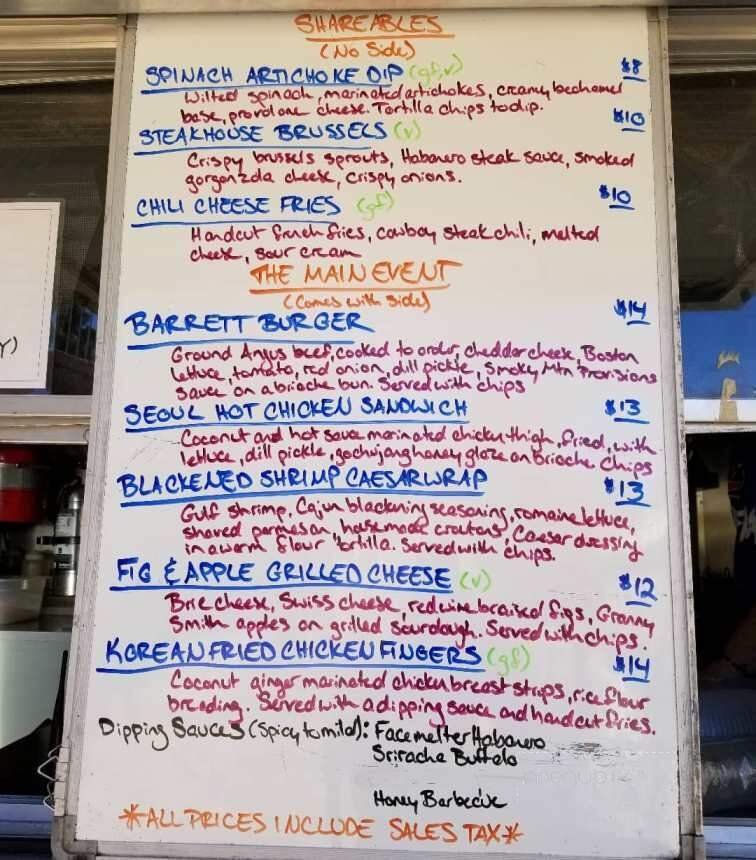 SHAREABLES
(No Side)
SPINACH ARTICHOKE DIP (gf,v) $8
Wilted spinach, marinated artichokes, creamy bechamel
base, provolone cheese. Tortilla chips to dip.
STEAKHOUSE BRUSSELS (v) $10
Crispy brussels sprouts, Habanero steak sauce, smoked
gorgonzola cheese, crispy onions.
CHILI CHEESE FRIES (gf) $10
Handcut french fries, cowboy steak chili, melted
cheese, sour cream
THE MAIN EVENT
(Comes with side)
BARRETT BURGER $14
Ground Angus beef, cooked to order, cheddar cheese, Boston
lettuce, tomato, red onion, dill pickle, Smoky Mtn Provisions
Sauce on a brioche bun. Served with chips
SEOUL HOT CHICKEN SANDWICH $13
Coconut and hot sauce marinated chicken thigh, fried, with
lettuce, dill pickle, gochujang honey glaze on Brioche Chips
BLACKENED SHRIMP CAESAR WRAP $13
Gulf shrimp, Cajun blackning seasoning, romaine lettuce,
shaved parmesan, housemade croutons, Caesar dressing
in a warm flour tortilla. Served with chips.
FIG & APPLE GRILLED CHEESE (v) $12
Brie cheese, Swiss cheese, red wine braised figs, Granny
Smith apples on grilled sourdough. Served with chips.
KOREAN FRIED CHICKEN FINGERS (gf) $14
Coconut ginger marinated chicken breast strips, rice flour
breading. Served with a dipping sauce and handcut fries.
Dipping Sauces (Spicy to mild): Facemelter Habanero
Sriracha Buffalo
Honey Barbecue
*ALL PRICES INCLUDE SALES TAX*
Y)